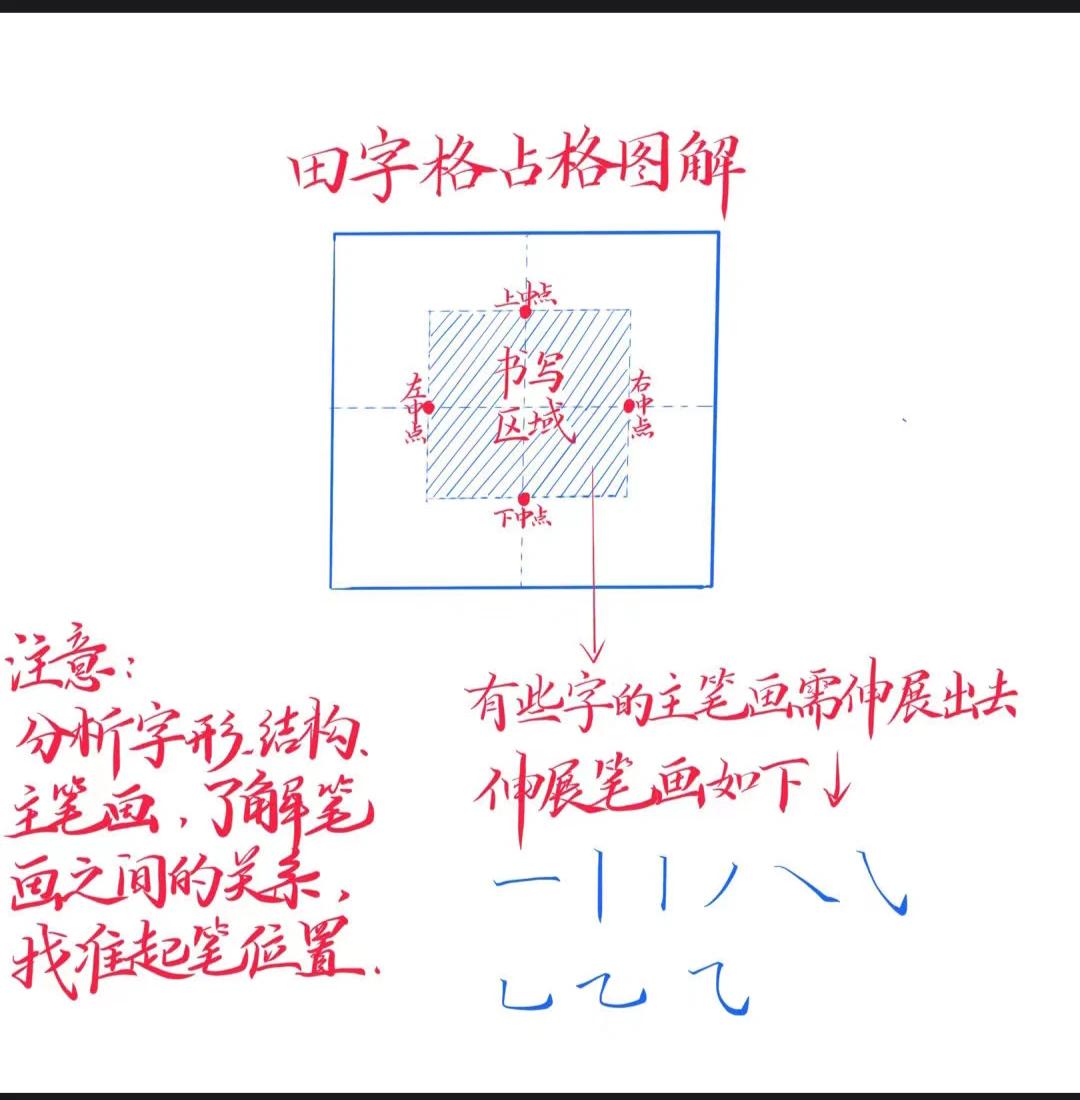 田字格占格图解
上中点
书写
区域
左中点
右中点
下中点
注意:
分析字形、结构、
主笔画,了解笔
画之间的关系,
找准起笔位置.
有些字的主笔画需伸展出去
伸展笔画如下↓
一丨丨丿㇏㇂
乚乙⺄